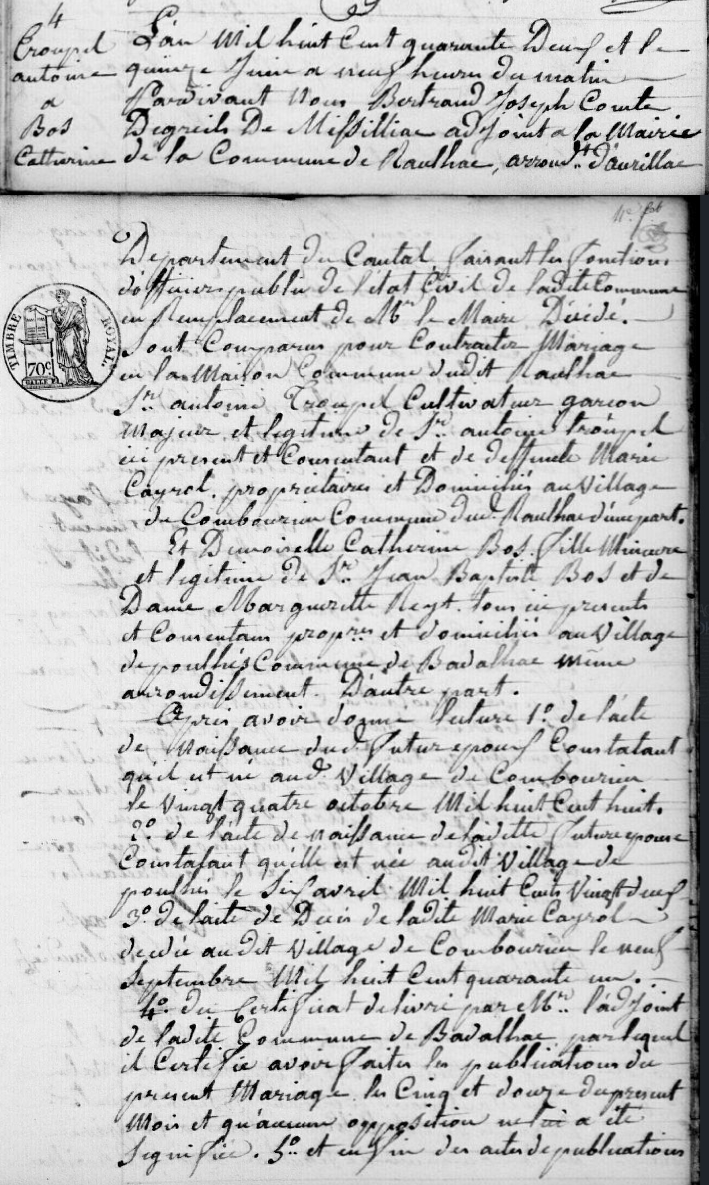 4
Troupel
antoine
a
Bos
Catherine
L'an Mil huit Cent quarante Deux et le
quinze Juin a neuf heures du matin
Pardevant Nous Bertrand Joseph Comte
Degreils De Missilliac adjoint a la Mairie
de la Commune de Raulhac, arrondt. d'aurillac
Departement du Cantal faisant les fonctions
d'officier public de l'etat Civil de ladite Commune
en Remplacement de Mr. le Maire Décédé.
Sont Comparus pour Contracter Mariage
en la Maison Commune dudit Raulhac
Sr. antoine Troupel Cultivateur garcon
Majeur et legitime de Sr. antoine troupel
ici present et Consentant et de deffunte Marie
Cayrol. propriétaires et Domiciliés au village
de Combourieu Commune dud. Raulhac d'une part.
Et Demoiselle Catherine Bos. fille Mineure
et legitime de Sr. Jean Baptiste Bos et de
Dame Marguerite Reyt. tous ici presents
et Consentans propres. et domiciliés au village
de poulhés Commune de Badalhac même
arrondissement. D'autre part.
Après avoir donné lecture 1o. de l'acte
de Naissance dud. futur epoux Constatant
qu'il est né aud. village de Combourieu
le vingt quatre octobre Mil huit Cent huit.
2o. de l'acte de naissance de ladite future epouse
Constatant qu'elle est née audit village de
poulhés le six avril Mil huit Cents vingt deux
3o. de l'acte de Décés de ladite Marie Cayrol
decédée audit village de Combourieu le neuf
Septembre Mil huit Cent quarante un.
4o. du Certificat delivré par Mr. l'adjoint
de ladite Commune de Badalhac par lequel
il Certifie avoir faites les publications du
present Mariage les Cinq et douze du present
Mois et qu'aucune opposition ne lui a été
Signifiée. 5o. et enfin des actes de publications
TIMBRE ROYAL.
70c